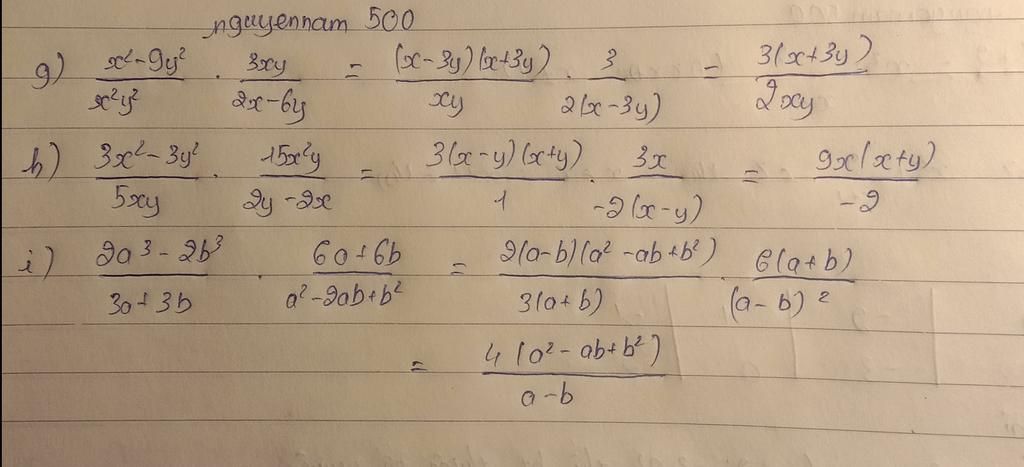 nguyennam 500
g) \frac{x²-9y²}{x²y²} · \frac{3xy}{2x-6y} = \frac{(x-3y)(x+3y)}{xy} · \frac{3}{2(x-3y)} = \frac{3(x+3y)}{2xy}
h) \frac{3x²-3y²}{5xy} · \frac{15x²y}{2y-2x} = \frac{3(x-y)(x+y)}{1} · \frac{3x}{-2(x-y)} = \frac{9x(x+y)}{-2}
i) \frac{2a³-2b³}{3a+3b} · \frac{6a+6b}{a²-2ab+b²} = \frac{2(a-b)(a²-ab+b²)}{3(a+b)} · \frac{6(a+b)}{(a-b)²}
= \frac{4(a²-ab+b²)}{a-b}